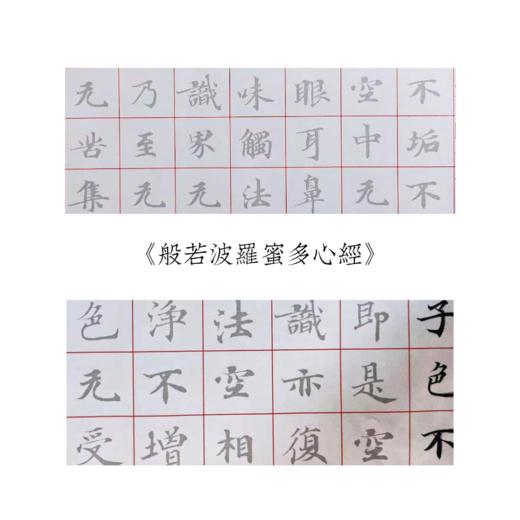 不垢不
空中无
眼耳鼻
味觸法
識界无
乃至无
无苦集
《般若波羅蜜多心經》
子色不
即是空
識亦復
法空相
淨不增
色无受